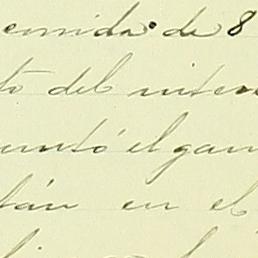 comida de 8
to del inter
untó el gan
tán en el